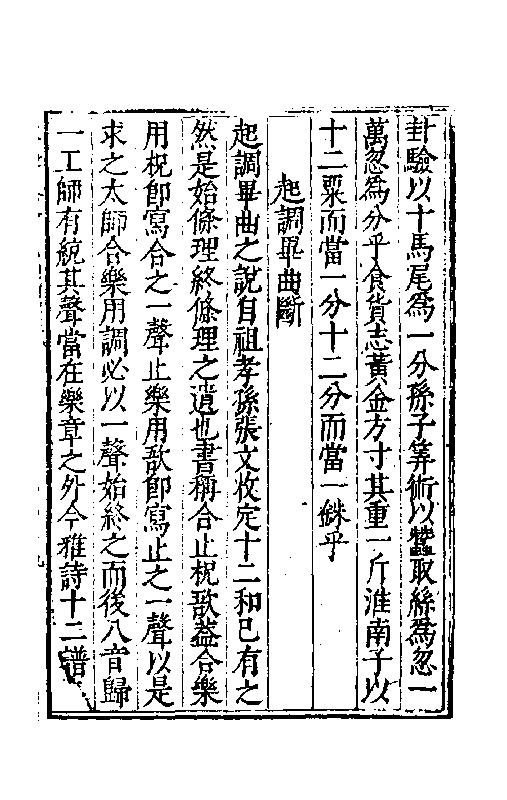 卦驗以十馬尾爲一分孫子筭術以蠶取絲爲忽一
萬忽爲分乎食貨志黃金方寸其重一斤淮南子以
十二粟而當一分十二分而當一銖乎
起調畢曲斷
起調畢曲之說自祖孝孫張文收定十二和已有之
然是始條理終條理之遺也書稱合止柷敔葢合樂
用柷卽寫合之一聲止樂用敔卽寫止之一聲以是
求之太師合樂用調必以一聲始終之而後八音歸
一工師有統其聲當在樂章之外今雅詩十二譜